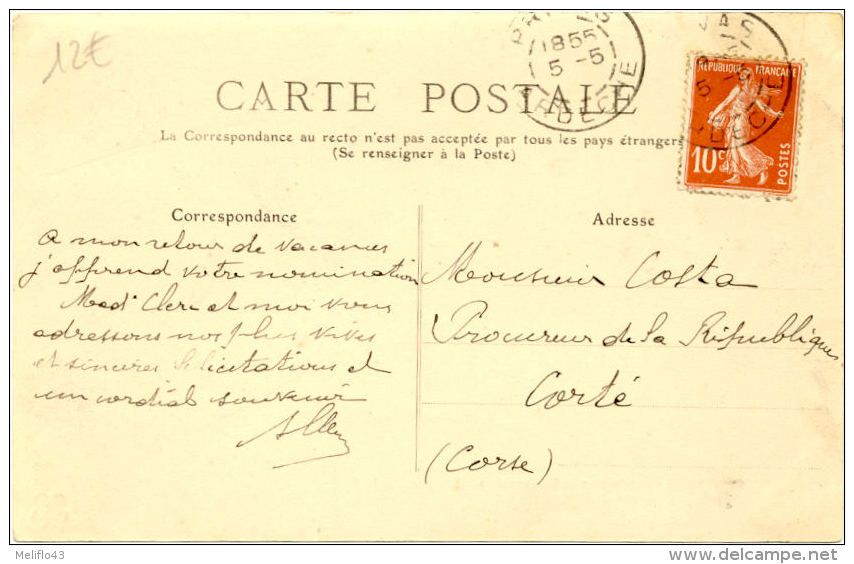 12€
PRIVAS
1855
5 -5
ARDECHE
CARTE POSTALE
La Correspondance au recto n'est pas acceptée par tous les pays étrangers
(Se renseigner à la Poste)
VAS
DECHE
REPUBLIQUE FRANÇAISE
10c
POSTES
Correspondance
A mon retour de vacances
j'apprend votre nomination
Mad. Clerc et moi vous
adressons nos plus vives
et sincères felicitations et
un cordial souvenir
Adresse
Monsieur Costa
Procureur de la République
Corté
(Corse)
Meliflo43
delcampe.net